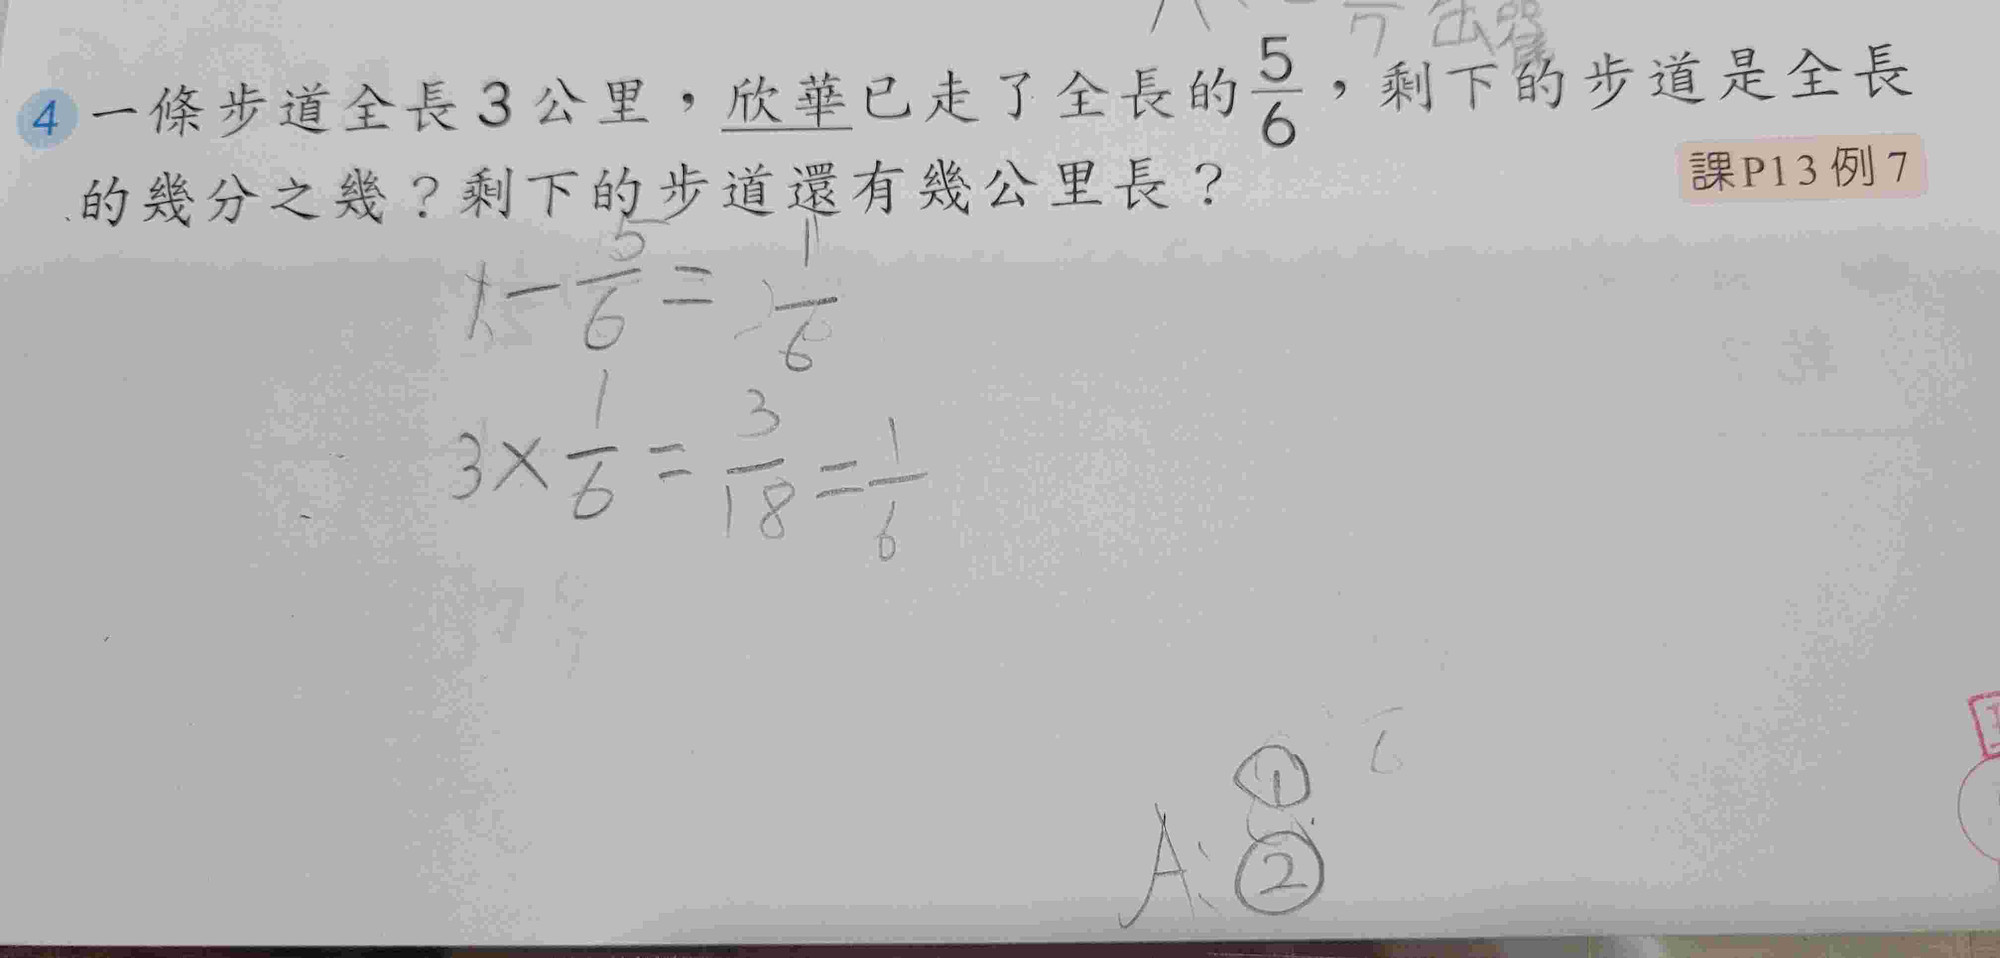 4 一條步道全長3公里，欣華已走了全長的5/6，剩下的步道是全長
的幾分之幾？剩下的步道還有幾公里長？
課P13例7
1-5/6=1/6
3×1/6=3/18=1/6
①
A:②